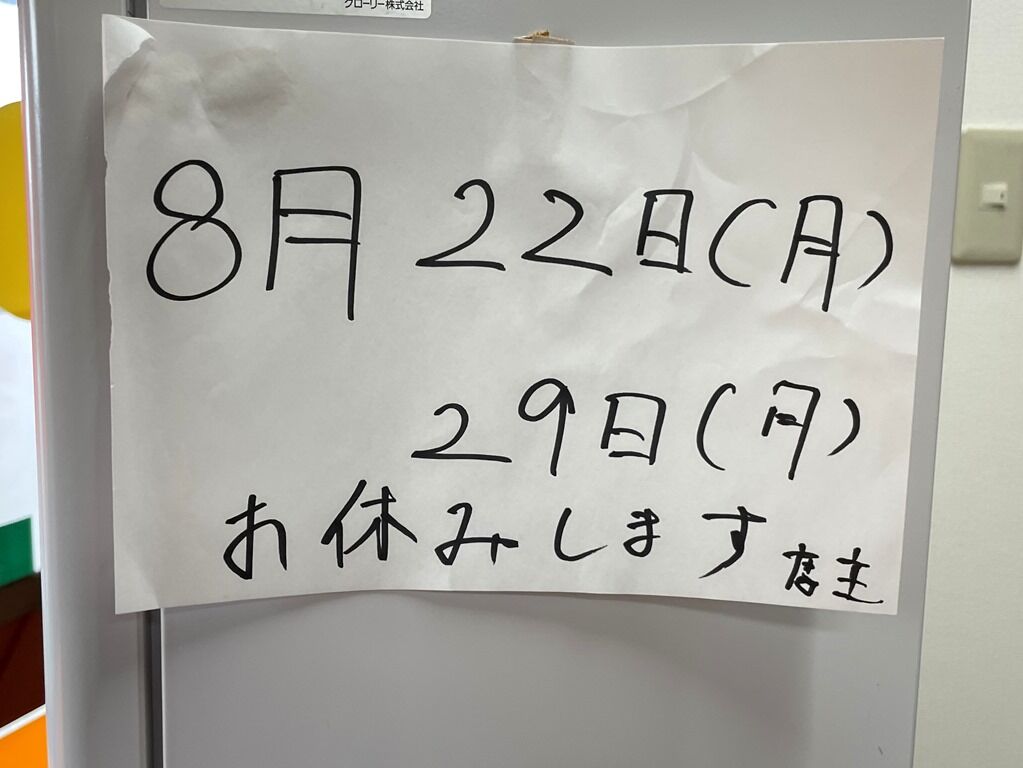 グローリー株式会社
8月 22日(月)
29日(月)
お休みします 店主